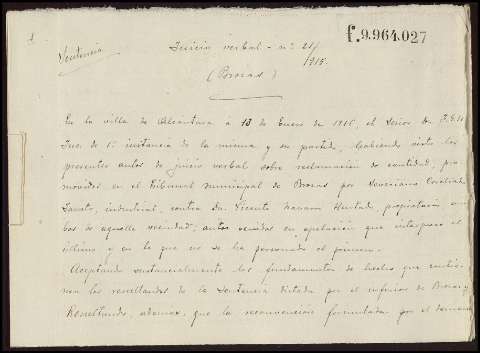 f.9.964.027
Sentencia
Juicio verbal - nº 21/
1915.
(Brozas)
En la villa de Alcántara á 13 de Enero de 1916, el Señor Dn
Juez de 1ª instancia de la misma y su partido, habiendo visto los
presentes autos de juicio verbal sobre reclamacion de cantidad, pro-
movidos en el Tribunal municipal de Brozas por
industrial, contra Dn. Vicente Navarro Hurtado, propietario, am-
bos de aquella vecindad; autos venidos en apelación que interpuso el
último y en la que no se ha personado el primero.
Aceptando sustancialmente los fundamentos de hecho que contie-
nen los resultandos de la sentencia dictada por el inferior de Brozas y
Resultando, ademas, que la reconvención formulada por el deman-